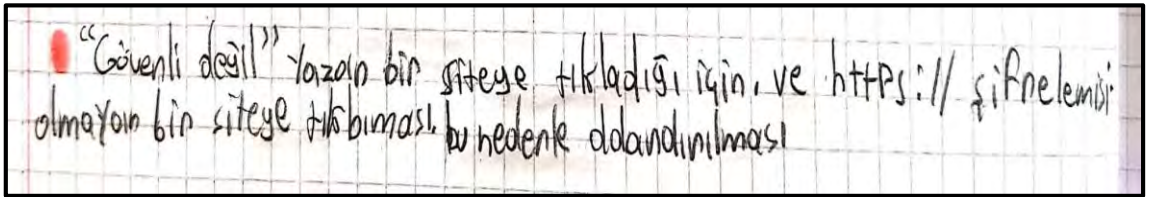 "Güvenli değil" Yazan bir siteye tıkladığı için, ve https:// şifrelemisi
olmayan bir siteye tıklaması, bu nedenle dolandırılması